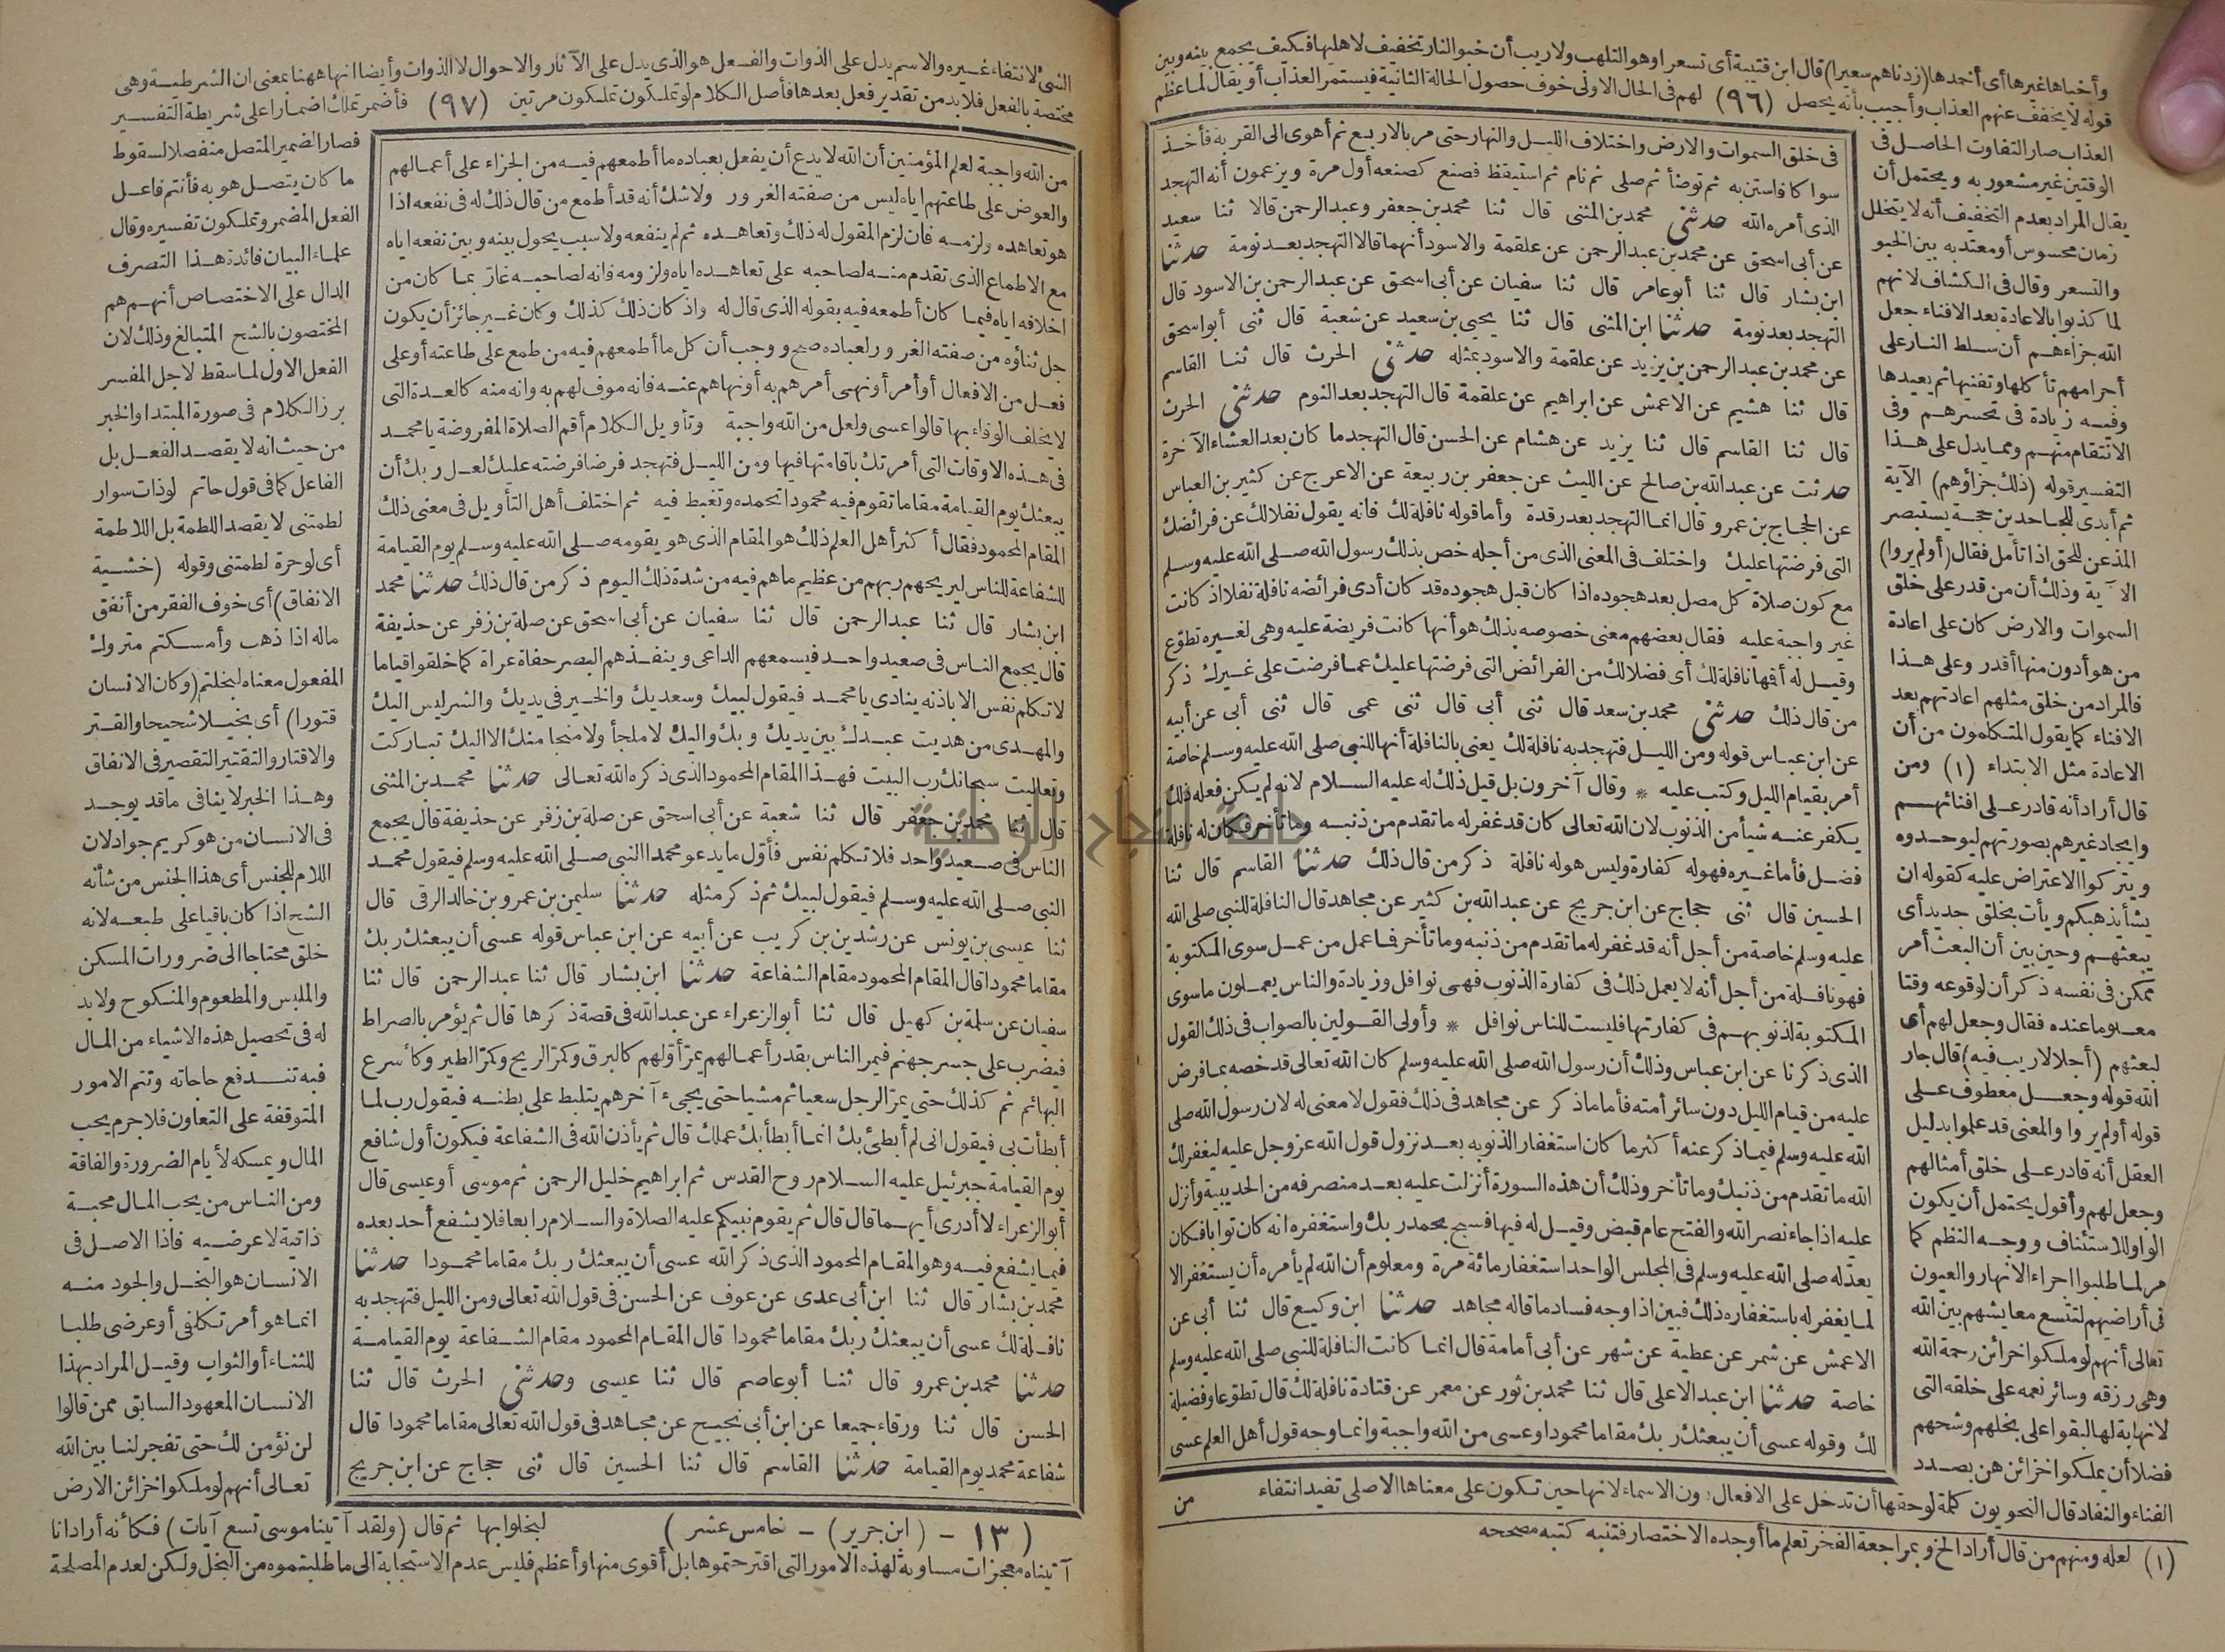 وأخباها غيرها أى أخمدها (زدناهم سعيرا) قال ابن قتيبة أى تسعرا وهو التلهب ولا ريب أن خبو النار تخفيف لاهلها فكيف يجمع بينه وبين
قوله لا يخفف عنهم العذاب وأجيب بأنه يحصل (٩٦) لهم فى الحال الاولى خوف حصول الحالة الثانية فيستمر العذاب أو يقال لما عظم
العذاب صار التفاوت الحاصل فى
الوقتين غير مشعور به ويحتمل أن
يقال المراد بعدم التخفيف أنه لا يتخلل
زمان محسوس أو معتد به بين الخبو
والتسعر وقال فى الكشاف لانهم
لما كذبوا بالاعادة بعد الافناء جعل
الله جزاءهم أن سلط النار على
أجرامهم تأكلها وتفنيها ثم يعيدها
وفيه زيادة فى تحسرهم وفى
الانتقام منهم ومما يدل على هذا
التفسير قوله (ذلك جزاؤهم) الآية
ثم أبدى للجاحدين حجة يستبصر
المذعن للحق اذا تأمل فقال (أولم يروا)
الآية وذلك أن من قدر على خلق
السموات والارض كان على اعادة
من هو أدون منها أقدر وعلى هذا
فالمراد من خلق مثلهم اعادتهم بعد
الافناء كما يقول المتكلمون من أن
الاعادة مثل الابتداء (١) ومن
قال أراد أنه قادر على افنائهم
وايجاد غيرهم بصورتهم ليوحدوه
ويتركوا الاعتراض عليه كقوله ان
يشأ يذهبكم ويأت بخلق جديد أى
يبعثهم وحين بين أن البعث أمر
ممكن فى نفسه ذكر أن لوقوعه وقتا
معلوما عنده فقال وجعل لهم أى
لبعثهم (أجلا لا ريب فيه) قال جار
الله قوله وجعل معطوف على
قوله أولم يروا والمعنى قد علموا بدليل
العقل أنه قادر على خلق أمثالهم
وجعل لهم وأقول يحتمل أن يكون
الواو للاستئناف ووجه النظم كما
مر لما طلبوا اجراء الانهار والعيون
فى أراضيهم لتتسع معايشهم بين الله
تعالى أنهم لو ملكوا خزائن رحمة الله
وهى رزقه وسائر نعمه على خلقه التى
لا نهاية لها لبقوا على بخلهم وشحهم
فضلا أن يملكوا خزائن هن بصدد
الفناء والنفاد قال النحويون كلمة لو حقها أن تدخل على الافعال دون الاسماء لانها حين تكون على معناها الاصلى تفيد انتفاء
فى خلق السموات والارض واختلاف الليل والنهار حتى مر بالاربع ثم أهوى الى القربة فأخذ
سواكا فاستن به ثم توضأ ثم صلى ثم نام ثم استيقظ فصنع كصنعه أول مرة ويزعمون أنه التهجد
الذى أمره الله حدثنى محمد بن المثنى قال ثنا محمد بن جعفر وعبد الرحمن قالا ثنا سعيد
عن أبى اسحق عن محمد بن عبد الرحمن عن علقمة والاسود أنهما قالا التهجد بعد نومة حدثنا
ابن بشار قال ثنا أبو عامر قال ثنا سفيان عن أبى اسحق عن عبد الرحمن بن الاسود قال
التهجد بعد نومة حدثنا ابن المثنى قال ثنا يحيى بن سعيد عن شعبة قال ثنى أبو اسحق
عن محمد بن عبد الرحمن بن يزيد عن علقمة والاسود بمثله حدثنى الحرث قال ثنا القاسم
قال ثنا هشيم عن الاعمش عن ابراهيم عن علقمة قال التهجد بعد النوم حدثنى الحرث
قال ثنا القاسم قال ثنا يزيد عن هشام عن الحسن قال التهجد ما كان بعد العشاء الآخرة
حدثت عن عبد الله بن صالح عن الليث عن جعفر بن ربيعة عن الاعرج عن كثير بن العباس
عن الحجاج بن عمرو قال انما التهجد بعد رقدة وأما قوله نافلة لك فانه يقول نفلا لك عن فرائضك
التى فرضتها عليك واختلف فى المعنى الذى من أجله خص بذلك رسول الله صلى الله عليه وسلم
مع كون صلاة كل مصل بعد هجوده اذا كان قبل هجوده قد كان أدى فرائضه نافلة نفلا اذ كانت
غير واجبة عليه فقال بعضهم معنى خصوصه بذلك هو أنها كانت فريضة عليه وهى لغيره تطوع
وقيل له أقمها نافلة لك أى فضلا لك من الفرائض التى فرضتها عليك عما فرضت على غيرك ذكر
من قال ذلك حدثنى محمد بن سعد قال ثنى أبى قال ثنى عمى قال ثنى أبى عن أبيه
عن ابن عباس قوله ومن الليل فتهجد به نافلة لك يعنى بالنافلة أنها للنبى صلى الله عليه وسلم خاصة
أمر بقيام الليل وكتب عليه * وقال آخرون بل قيل ذلك له عليه السلام لانه لم يكن فعله ذلك
يكفر عنه شيأ من الذنوب لان الله تعالى كان قد غفر له ما تقدم من ذنبه وما تأخر فكان له نافلة
فضل فأما غيره فهو له كفارة وليس هو له نافلة ذكر من قال ذلك حدثنا القاسم قال ثنا
الحسين قال ثنى حجاج عن ابن جريج عن عبد الله بن كثير عن مجاهد قال النافلة للنبى صلى الله
عليه وسلم خاصة من أجل أنه قد غفر له ما تقدم من ذنبه وما تأخر فما عمل من عمل سوى المكتوبة
فهو نافلة من أجل أنه لا يعمل ذلك فى كفارة الذنوب فهى نوافل وزيادة والناس يعملون ما سوى
المكتوبة لذنوبهم فى كفارتها فليست للناس نوافل * وأولى القولين بالصواب فى ذلك القول
الذى ذكرنا عن ابن عباس وذلك أن رسول الله صلى الله عليه وسلم كان الله تعالى قد خصه بما فرض
عليه من قيام الليل دون سائر أمته فأما ما ذكر عن مجاهد فى ذلك فقول لا معنى له لان رسول الله صلى
الله عليه وسلم فيما ذكر عنه أكثر ما كان استغفار الذنوبه بعد نزول قول الله عز وجل عليه ليغفر لك
الله ما تقدم من ذنبك وما تأخر وذلك أن هذه السورة أنزلت عليه بعد منصرفه من الحديبية وأنزل
عليه اذا جاء نصر الله والفتح عام قبض وقيل له فيها فسبح بحمد ربك واستغفره انه كان توابا فكان
يعد له صلى الله عليه وسلم فى المجلس الواحد استغفار مائة مرة ومعلوم أن الله لم يأمره أن يستغفر الا
لما يغفر له باستغفاره ذلك فبين اذا وجه فساد ما قاله مجاهد حدثنا ابن وكيع قال ثنا أبى عن
الاعمش عن شمر عن عطية عن شهر عن أبى أمامة قال انما كانت النافلة للنبى صلى الله عليه وسلم
خاصة حدثنا ابن عبد الاعلى قال ثنا محمد بن ثور عن معمر عن قتادة نافلة لك قال تطوعا وفضيلة
لك وقوله عسى أن يبعثك ربك مقاما محمودا وعسى من الله واجبة وانما وجه قول أهل العلم عسى
من
(١) لعله ومنهم من قال أراد الخ وبمراجعة الفخر تعلم ما أوجده الاختصار فتنبه كتبه مصححه
الشئ لانتفاء غيره والاسم يدل على الذوات والفعل هو الذى يدل على الآثار والاحوال لا الذوات وأيضا انها ههنا بمعنى ان الشرطية وهى
مختصة بالفعل فلا بد من تقدير فعل بعدها فأصل الكلام لو تملكون تملكون مرتين (٩٧) فأضمر تملك اضمارا على شريطة التفسير
من الله واجبة لعلم المؤمنين أن الله لا يدع أن يفعل بعباده ما أطمعهم فيه من الجزاء على أعمالهم
والعوض على طاعتهم اياه ليس من صفته الغرور ولا شك أنه قد أطمع من قال ذلك له فى نفعه اذا
هو تعاهده ولزمه فان لزم المقول له ذلك وتعاهده ثم لم ينفعه ولا سبب يحول بينه وبين نفعه اياه
مع الاطماع الذى تقدم منه لصاحبه على تعاهده اياه ولزومه فانه لصاحبه غار بما كان من
اخلافه اياه فيما كان أطمعه فيه بقوله الذى قال له واذ كان ذلك كذلك وكان غير جائز أن يكون
جل ثناؤه من صفته الغرور لعباده صح ووجب أن كل ما أطمعهم فيه من طمع على طاعته أو على
فعل من الافعال أو أمر أو نهى أمرهم به أو نهاهم عنه فانه موف لهم به وانه منه كالعدة التى
لا يخلف الوفاء بها قالوا عسى ولعل من الله واجبة وتأويل الكلام أقم الصلاة المفروضة يا محمد
فى هذه الاوقات التى أمرتك باقامتها فيها ومن الليل فتهجد فرضا فرضته عليك لعل ربك أن
يبعثك يوم القيامة مقاما تقوم فيه محمودا تحمده وتغبط فيه ثم اختلف أهل التأويل فى معنى ذلك
المقام المحمود فقال أكثر أهل العلم ذلك هو المقام الذى هو يقومه صلى الله عليه وسلم يوم القيامة
للشفاعة للناس ليريحهم ربهم من عظيم ما هم فيه من شدة ذلك اليوم ذكر من قال ذلك حدثنا محمد
ابن بشار قال ثنا عبد الرحمن قال ثنا سفيان عن أبى اسحق عن صلة بن زفر عن حذيفة
قال يجمع الناس فى صعيد واحد فيسمعهم الداعى وينفذهم البصر حفاة عراة كما خلقوا قياما
لا تكلم نفس الا باذنه ينادى يا محمد فيقول لبيك وسعديك والخير فى يديك والشر ليس اليك
والمهدى من هديت عبدك بين يديك وبك واليك لا ملجأ ولا منجا منك الا اليك تباركت
وتعاليت سبحانك رب البيت فهذا المقام المحمود الذى ذكره الله تعالى حدثنا محمد بن المثنى
قال ثنا محمد بن جعفر قال ثنا شعبة عن أبى اسحق عن صلة بن زفر عن حذيفة قال يجمع
الناس فى صعيد واحد فلا تكلم نفس فأول ما يدعو محمدا النبى صلى الله عليه وسلم فيقول محمد
النبى صلى الله عليه وسلم فيقول لبيك ثم ذكر مثله حدثنا سليمن بن عمرو بن خالد الرقى قال
ثنا عيسى بن يونس عن رشدين بن كريب عن أبيه عن ابن عباس قوله عسى أن يبعثك ربك
مقاما محمودا قال المقام المحمود مقام الشفاعة حدثنا ابن بشار قال ثنا عبد الرحمن قال ثنا
سفيان عن سلمة بن كهيل قال ثنا أبو الزعراء عن عبد الله فى قصة ذكرها قال ثم يؤمر بالصراط
فيضرب على جسر جهنم فيمر الناس بقدر أعمالهم يمر أولهم كالبرق وكمر الريح وكمر الطير وكأسرع
البهائم ثم كذلك حتى يمر الرجل سعيا ثم مشيا حتى يجىء آخرهم يتلبط على بطنه فيقول رب لما
أبطأت بى فيقول انى لم أبطئ بك انما أبطأ بك عملك قال ثم يأذن الله فى الشفاعة فيكون أول شافع
يوم القيامة جبرئيل عليه السلام روح القدس ثم ابراهيم خليل الرحمن ثم موسى أو عيسى قال
أبو الزعراء لا أدرى أيهما قال قال ثم يقوم نبيكم عليه الصلاة والسلام رابعا فلا يشفع أحد بعده
فيما يشفع فيه وهو المقام المحمود الذى ذكر الله عسى أن يبعثك ربك مقاما محمودا حدثنا
محمد بن بشار قال ثنا ابن أبى عدى عن عوف عن الحسن فى قول الله تعالى ومن الليل فتهجد به
نافلة لك عسى أن يبعثك ربك مقاما محمودا قال المقام المحمود مقام الشفاعة يوم القيامة
حدثنا محمد بن عمرو قال ثنا أبو عاصم قال ثنا عيسى وحدثنى الحرث قال ثنا
الحسن قال ثنا ورقاء جميعا عن ابن أبى نجيح عن مجاهد فى قول الله تعالى مقاما محمودا قال
شفاعة محمد يوم القيامة حدثنا القاسم قال ثنا الحسين قال ثنى حجاج عن ابن جريج
فصار الضمير المتصل منفصلا لسقوط
ما كان يتصل هو به فأنتم فاعل
الفعل المضمر وتملكون تفسيره وقال
علماء البيان فائدة هذا التصرف
الدال على الاختصاص أنهم هم
المختصون بالشح المتبالغ وذلك لان
الفعل الاول لما سقط لاجل المفسر
برز الكلام فى صورة المبتدا والخبر
من حيث انه لا يقصد الفعل بل
الفاعل كما فى قول حاتم لو ذات سوار
لطمتنى لا يقصد اللطمة بل اللاطمة
أى لو حرة لطمتنى وقوله (خشية
الانفاق) أى خوف الفقر من أنفق
ماله اذا ذهب وأمسكتم متروك
المفعول معناه لبخلتم (وكان الانسان
قتورا) أى بخيلا شحيحا والقتر
والاقتار والتقتير التقصير فى الانفاق
وهذا الخبر لا ينافى ما قد يوجد
فى الانسان من هو كريم جواد لان
اللام للجنس أى هذا الجنس من شأنه
الشح اذا كان باقيا على طبعه لانه
خلق محتاجا الى ضرورات المسكن
والملبس والمطعوم والمنكوح ولا بد
له فى تحصيل هذه الاشياء من المال
فبه تندفع حاجاته وتتم الامور
المتوقفة على التعاون فلا جرم يحب
المال ويمسكه لأيام الضرورة والفاقة
ومن الناس من يحب المال محبة
ذاتية لا عرضية فاذا الاصل فى
الانسان هو البخل والجود منه
انما هو أمر تكلفى أو عرضى طلبا
للثناء أو الثواب وقيل المراد بهذا
الانسان المعهود السابق ممن قالوا
لن نؤمن لك حتى تفجر لنا بين الله
تعالى أنهم لو ملكوا خزائن الارض
(١٣ - (ابن جرير) - خامس عشر) لبخلوا بها ثم قال (ولقد آتينا موسى تسع آيات) فكأنه أراد انا
آتيناه معجزات مساوية لهذه الامور التى اقترحتموها بل أقوى منها وأعظم فليس عدم الاستجابة الى ما طلبتموه من البخل ولكن لعدم المصلحة
جامعة النجاح الوطنية